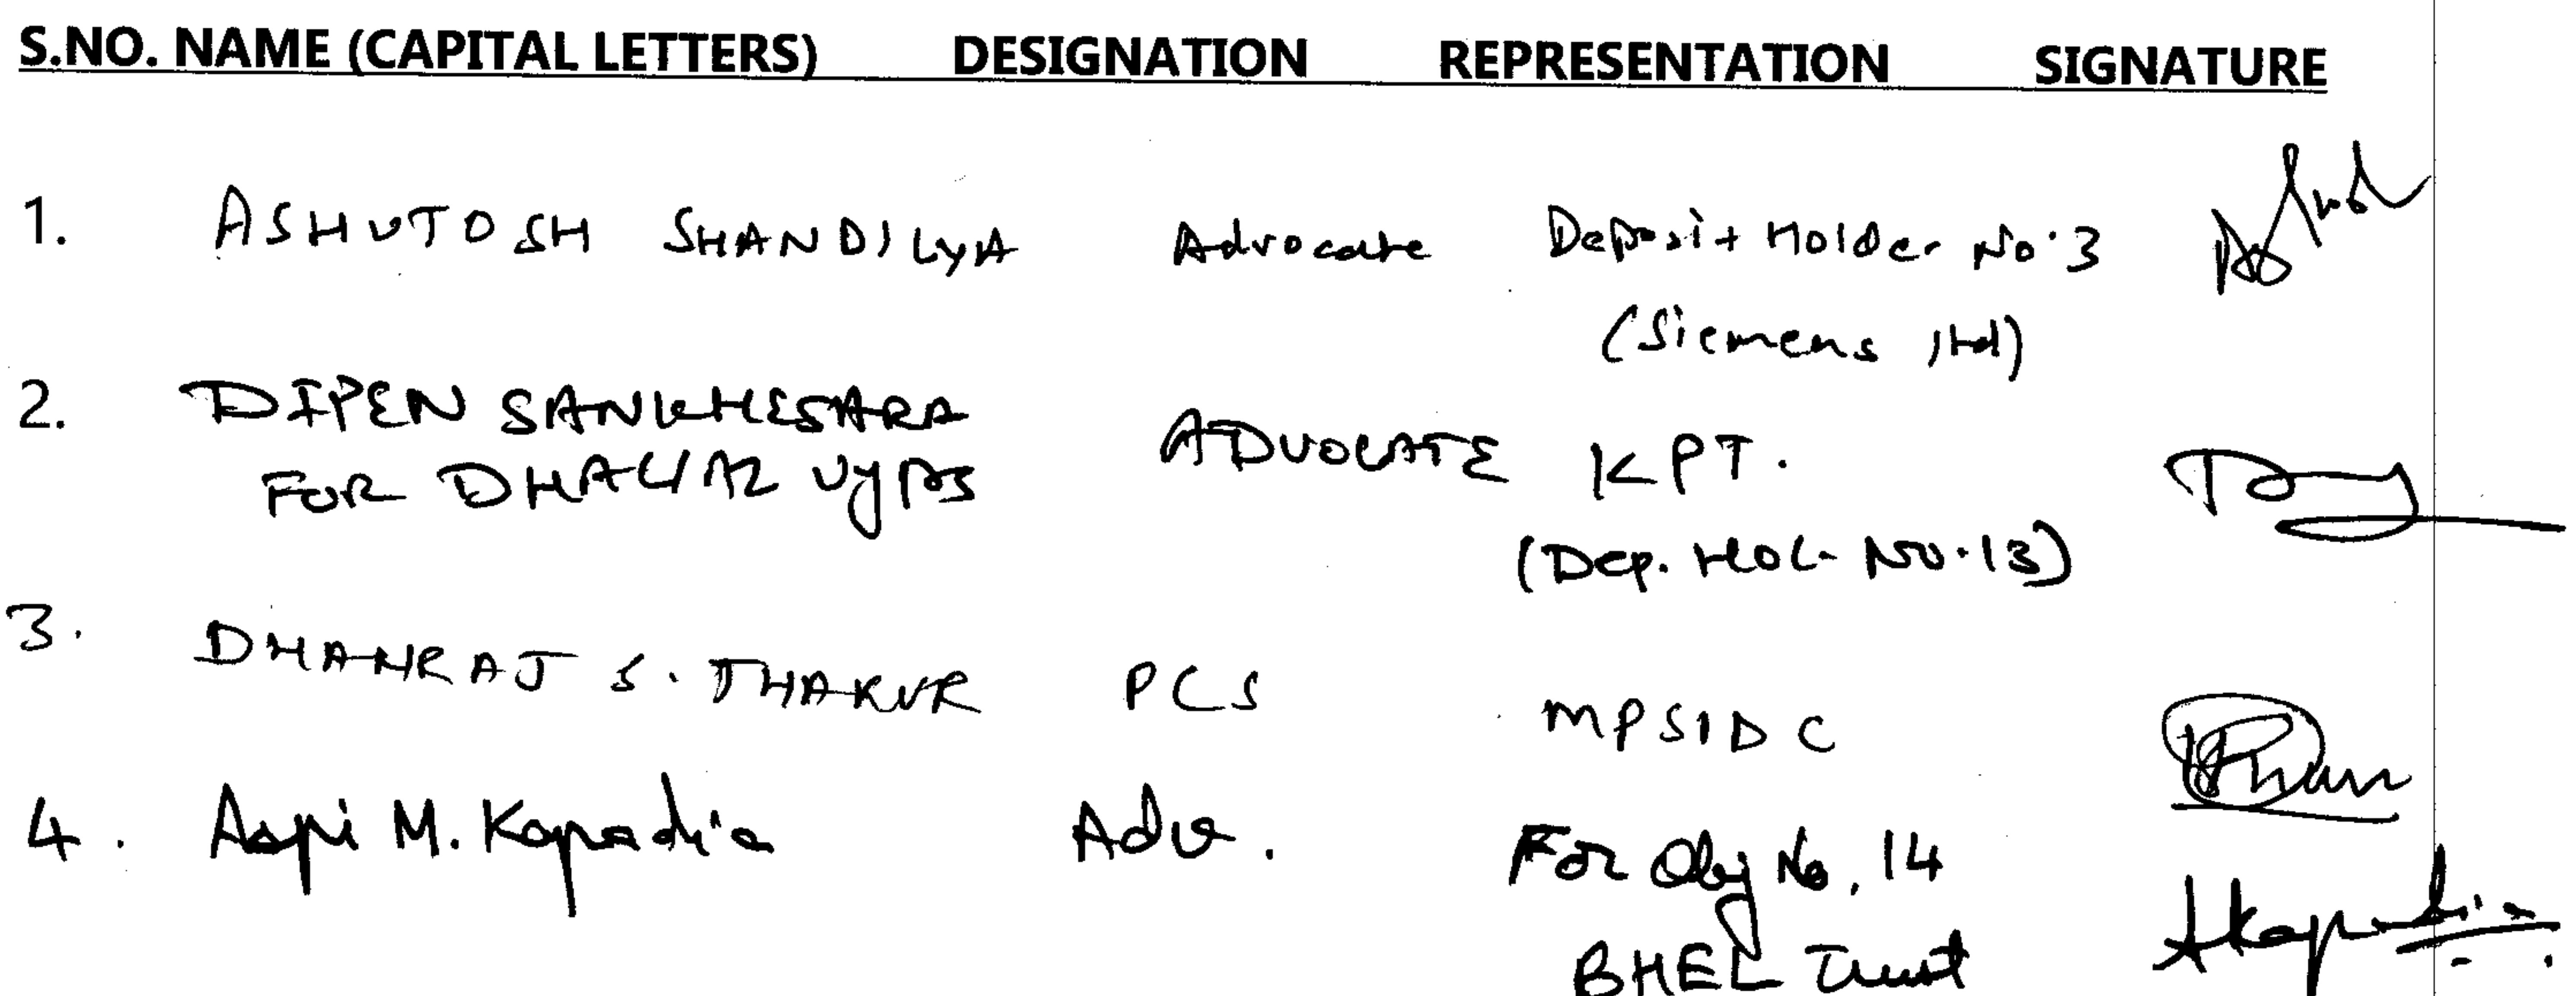 S.NO. NAME (CAPITAL LETTERS) DESIGNATION REPRESENTATION SIGNATURE
1. ASHUTOSH SHANDILYA Advocate Deposit Holder No.3
(Siemens ltd)
2. DIPEN SANKHESARA ADVOCATE KPT.
FOR VYAS
(Dep. HOL. NO.13)
3. DHANRAJ S. THAKUR PCS MPSIDC
4. Aspi M. Kapadia Adv. For Obj No. 14
BHEL Trust